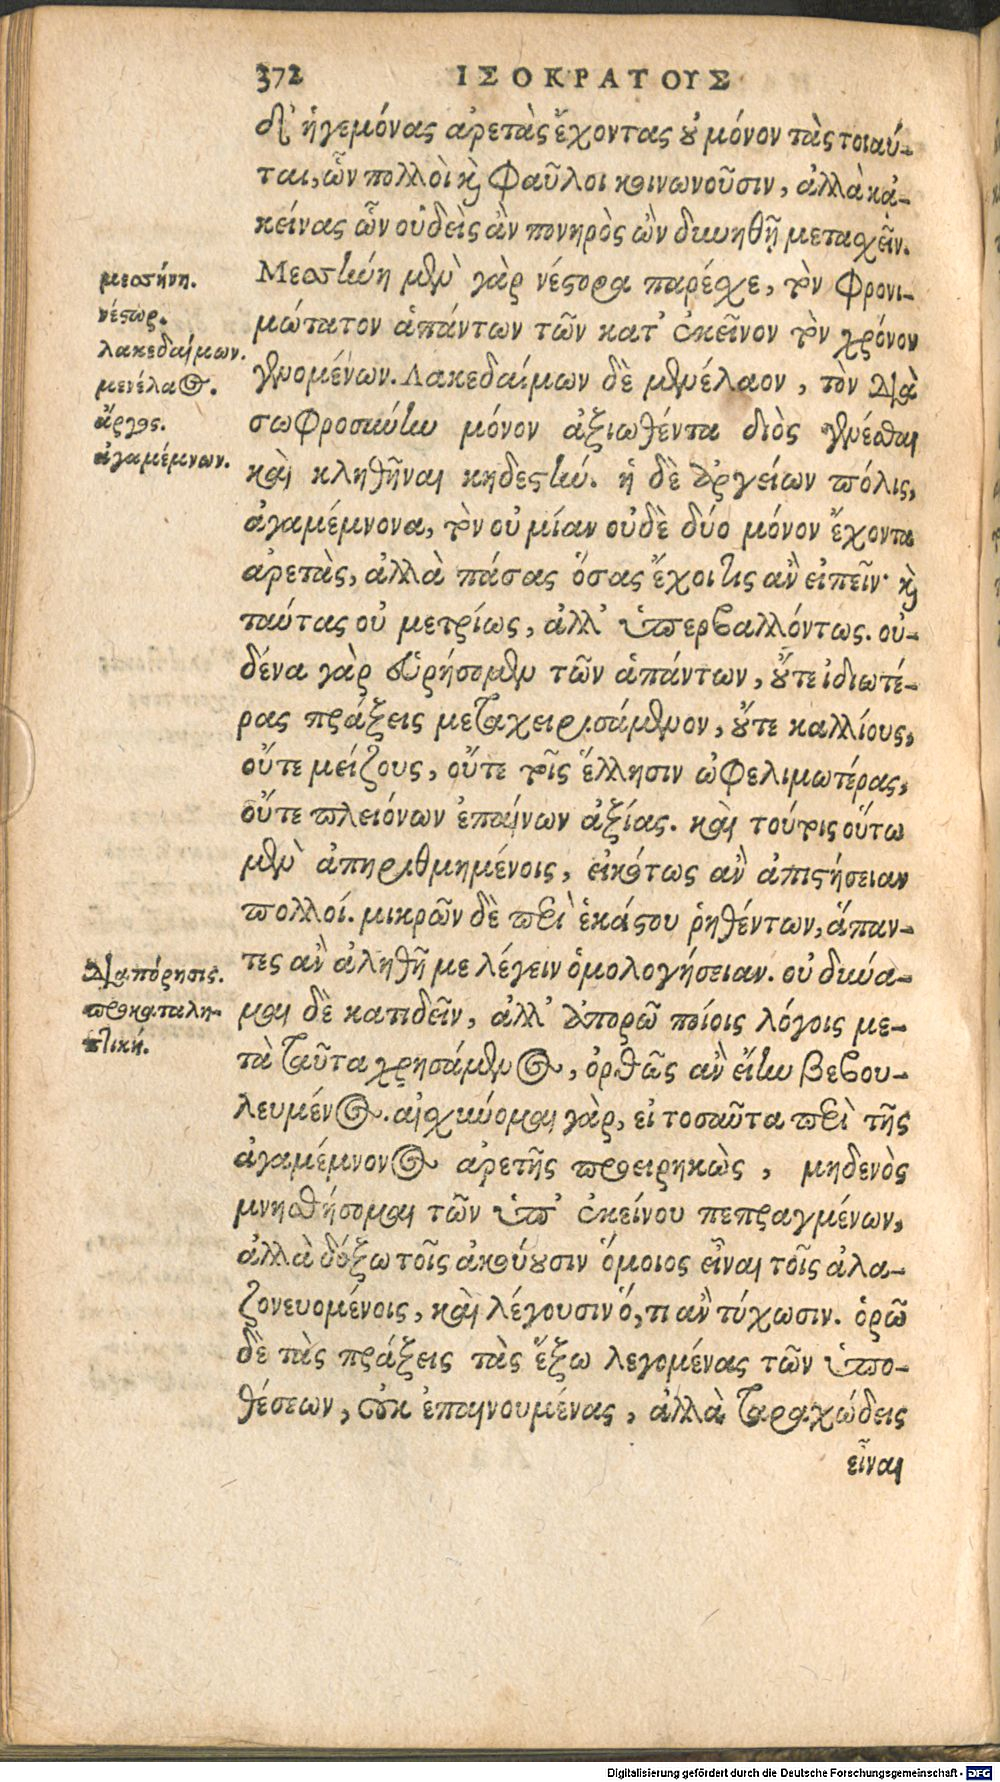 372 ΙΣΟΚΡΑΤΟΥΣ
δ' ἡγεμόνας ἀρετὰς ἔχοντας οὐ μόνον τὰς τοιαύ-
ται, ὧν πολλοὶ καὶ φαῦλοι κοινωνοῦσιν, ἀλλὰ κἀ-
κείνας ὧν οὐδεὶς ἂν πονηρὸς ὢν δυνηθῇ μετασχεῖν.
Μεσσήνη μὲν γὰρ νέστορα παρέσχε, τὸν φρονι-
μώτατον ἁπάντων τῶν κατ' ἐκεῖνον τὸν χρόνον
γενομένων. Λακεδαίμων δὲ μενέλαον, τὸν διὰ
σωφροσύνην μόνον ἀξιωθέντα διὸς γενέσθαι
καὶ κληθῆναι κηδεστήν. ἡ δὲ ἀργείων πόλις,
ἀγαμέμνονα, τὸν οὐ μίαν οὐδὲ δύο μόνον ἔχοντα
ἀρετὰς, ἀλλὰ πάσας ὅσας ἔχοι τις ἂν εἰπεῖν· καὶ
ταύτας οὐ μετρίως, ἀλλ' ὑπερβαλλόντως. οὐ-
δένα γὰρ εὑρήσομεν τῶν ἁπάντων, οὔτε ἰδιωτέ-
ρας πράξεις μεταχειρισάμενον, οὔτε καλλίους,
οὔτε μείζους, οὔτε τοῖς ἕλλησιν ὠφελιμωτέρας,
οὔτε πλειόνων ἐπαίνων ἀξίας. καὶ τούτοις οὕτω
μὲν ἀπηριθμημένοις, εἰκότως ἂν ἀπιστήσειαν
πολλοί. μικρῶν δὲ περὶ ἑκάστου ῥηθέντων, ἅπαν-
τες ἂν ἀληθῆ με λέγειν ὁμολογήσειαν. οὐ δύνα-
μαι δὲ κατιδεῖν, ἀλλ' ἀπορῶ ποίοις λόγοις με-
τὰ ταῦτα χρησάμενος, ὀρθῶς ἂν εἴην βεβου-
λευμένος. αἰσχύνομαι γὰρ, εἰ τοσαῦτα περὶ τῆς
ἀγαμέμνονος ἀρετῆς προειρηκὼς, μηδενὸς
μνησθήσομαι τῶν ὑπ' ἐκείνου πεπραγμένων,
ἀλλὰ δόξω τοῖς ἀκούουσιν ὅμοιος εἶναι τοῖς ἀλα-
ζονευομένοις, καὶ λέγουσιν ὅ, τι ἂν τύχωσιν. ὁρῶ
δὲ τὰς πράξεις τὰς ἔξω λεγομένας τῶν ὑπο-
θέσεων, οὐκ ἐπαινουμένας, ἀλλὰ ταραχώδεις
εἶναι
μεσσήνη.
νέστωρ.
λακεδαίμων.
μενέλαος.
ἄργος.
ἀγαμέμνων.
Διαπόρησις.
προκαταλη-
πτική.
Digitalisierung gefördert durch die Deutsche Forschungsgemeinschaft - DFG